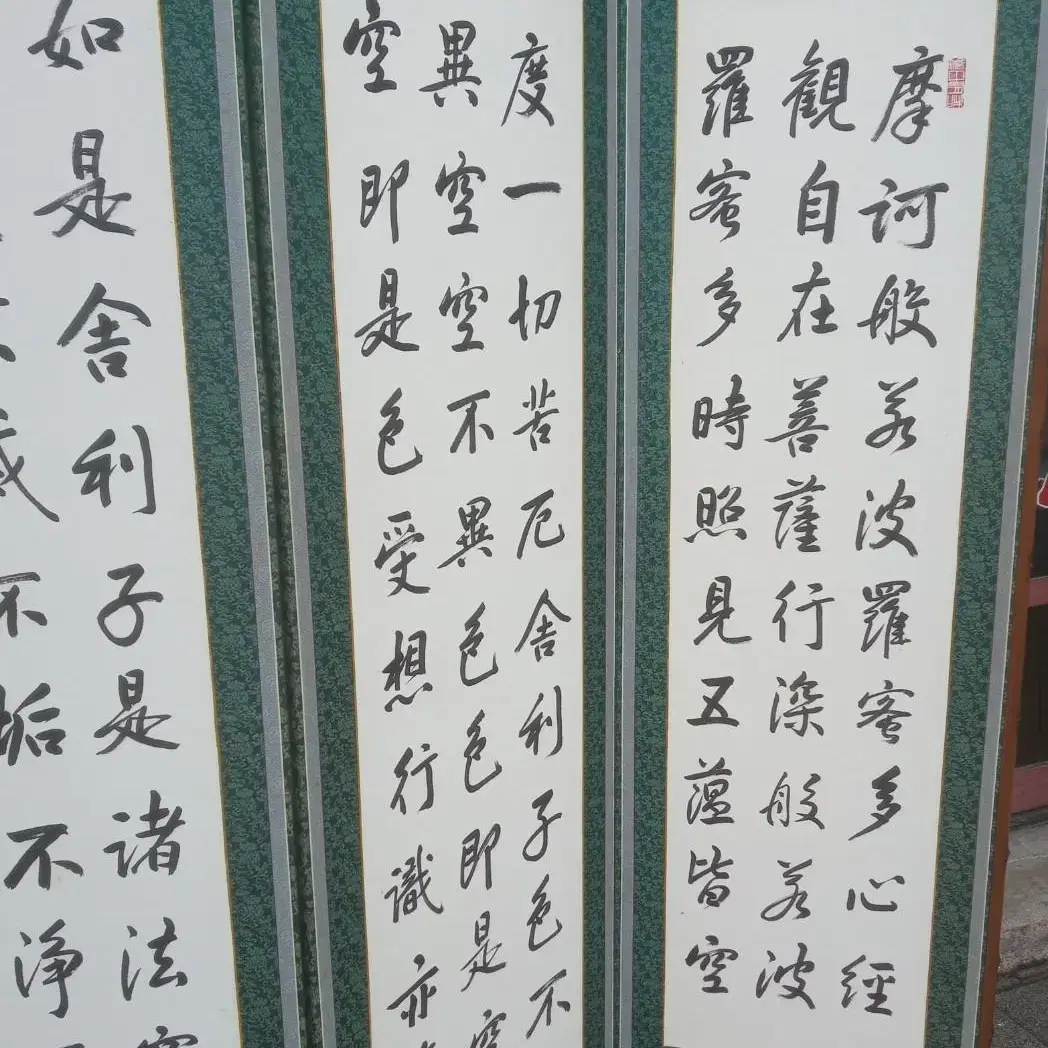 摩訶般若波羅蜜多心經
觀自在菩薩行深般若波
羅蜜多時照見五蘊皆空
度一切苦厄舍利子色不
異空空不異色色即是空
空即是色受想行識亦
如是舍利子是諸法空
不垢不淨